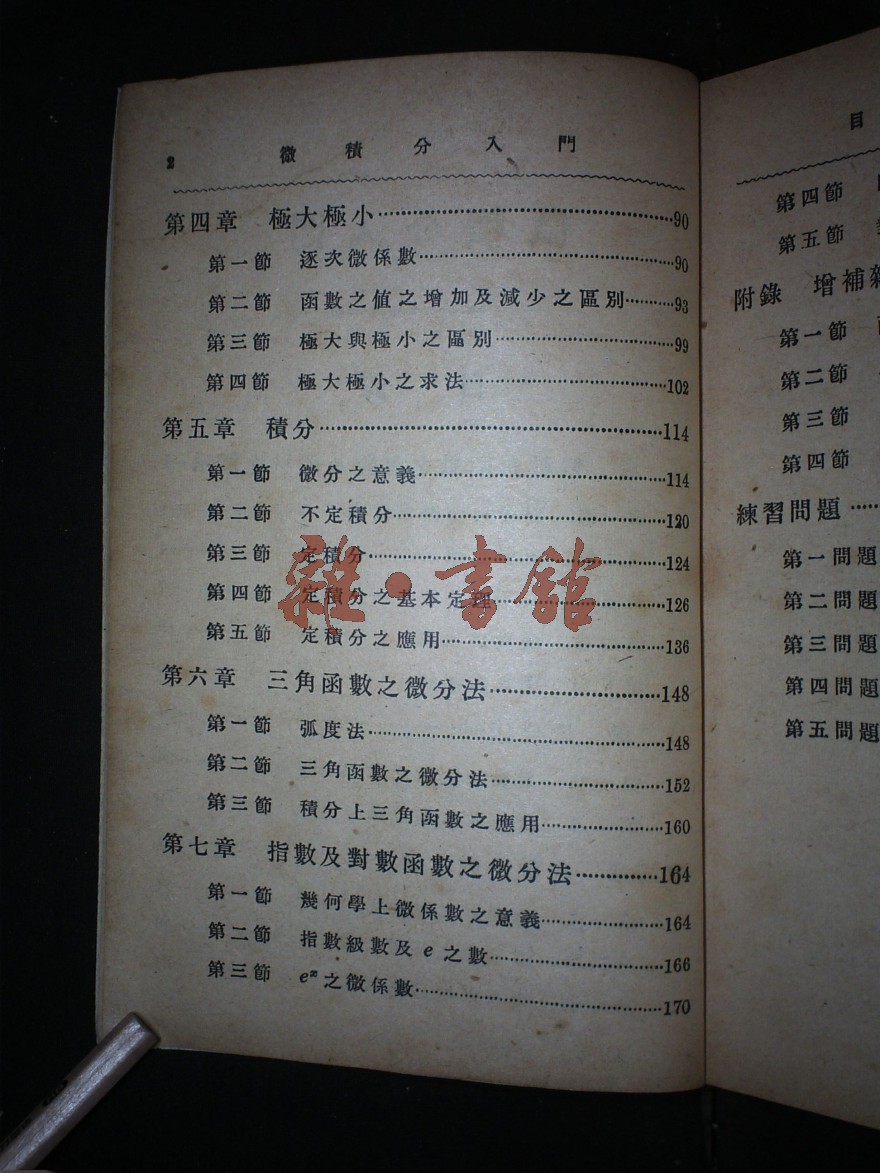 2 微積分入門
第四章 極大極小……90
第一節 逐次微係數……90
第二節 函數之值之增加及減少之區別……93
第三節 極大與極小之區別……99
第四節 極大極小之求法……102
第五章 積分……114
第一節 微分之意義……114
第二節 不定積分……120
第三節 定積分……124
第四節 定積分之基本定理……126
第五節 定積分之應用……136
第六章 三角函數之微分法……148
第一節 弧度法……148
第二節 三角函數之微分法……152
第三節 積分上三角函數之應用……160
第七章 指數及對數函數之微分法……164
第一節 幾何學上微係數之意義……164
第二節 指數級數及 e 之數……166
第三節 eˣ之微係數……170
雜·書館
目
第四節
第五節
附錄 增補
第一節
第二節
第三節
第四節
練習問題……
第一問題
第二問題
第三問題
第四問題
第五問題